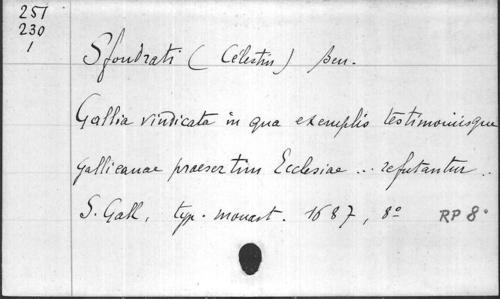 251
230
1
Sfondrati (Célestin) ben.
Gallia vindicata in qua exemplis testimoniisque
gallicanae praesertim Ecclesiae ... refutantur ..
S. Gall, typ. monast. 1687, 8º
RP 8º